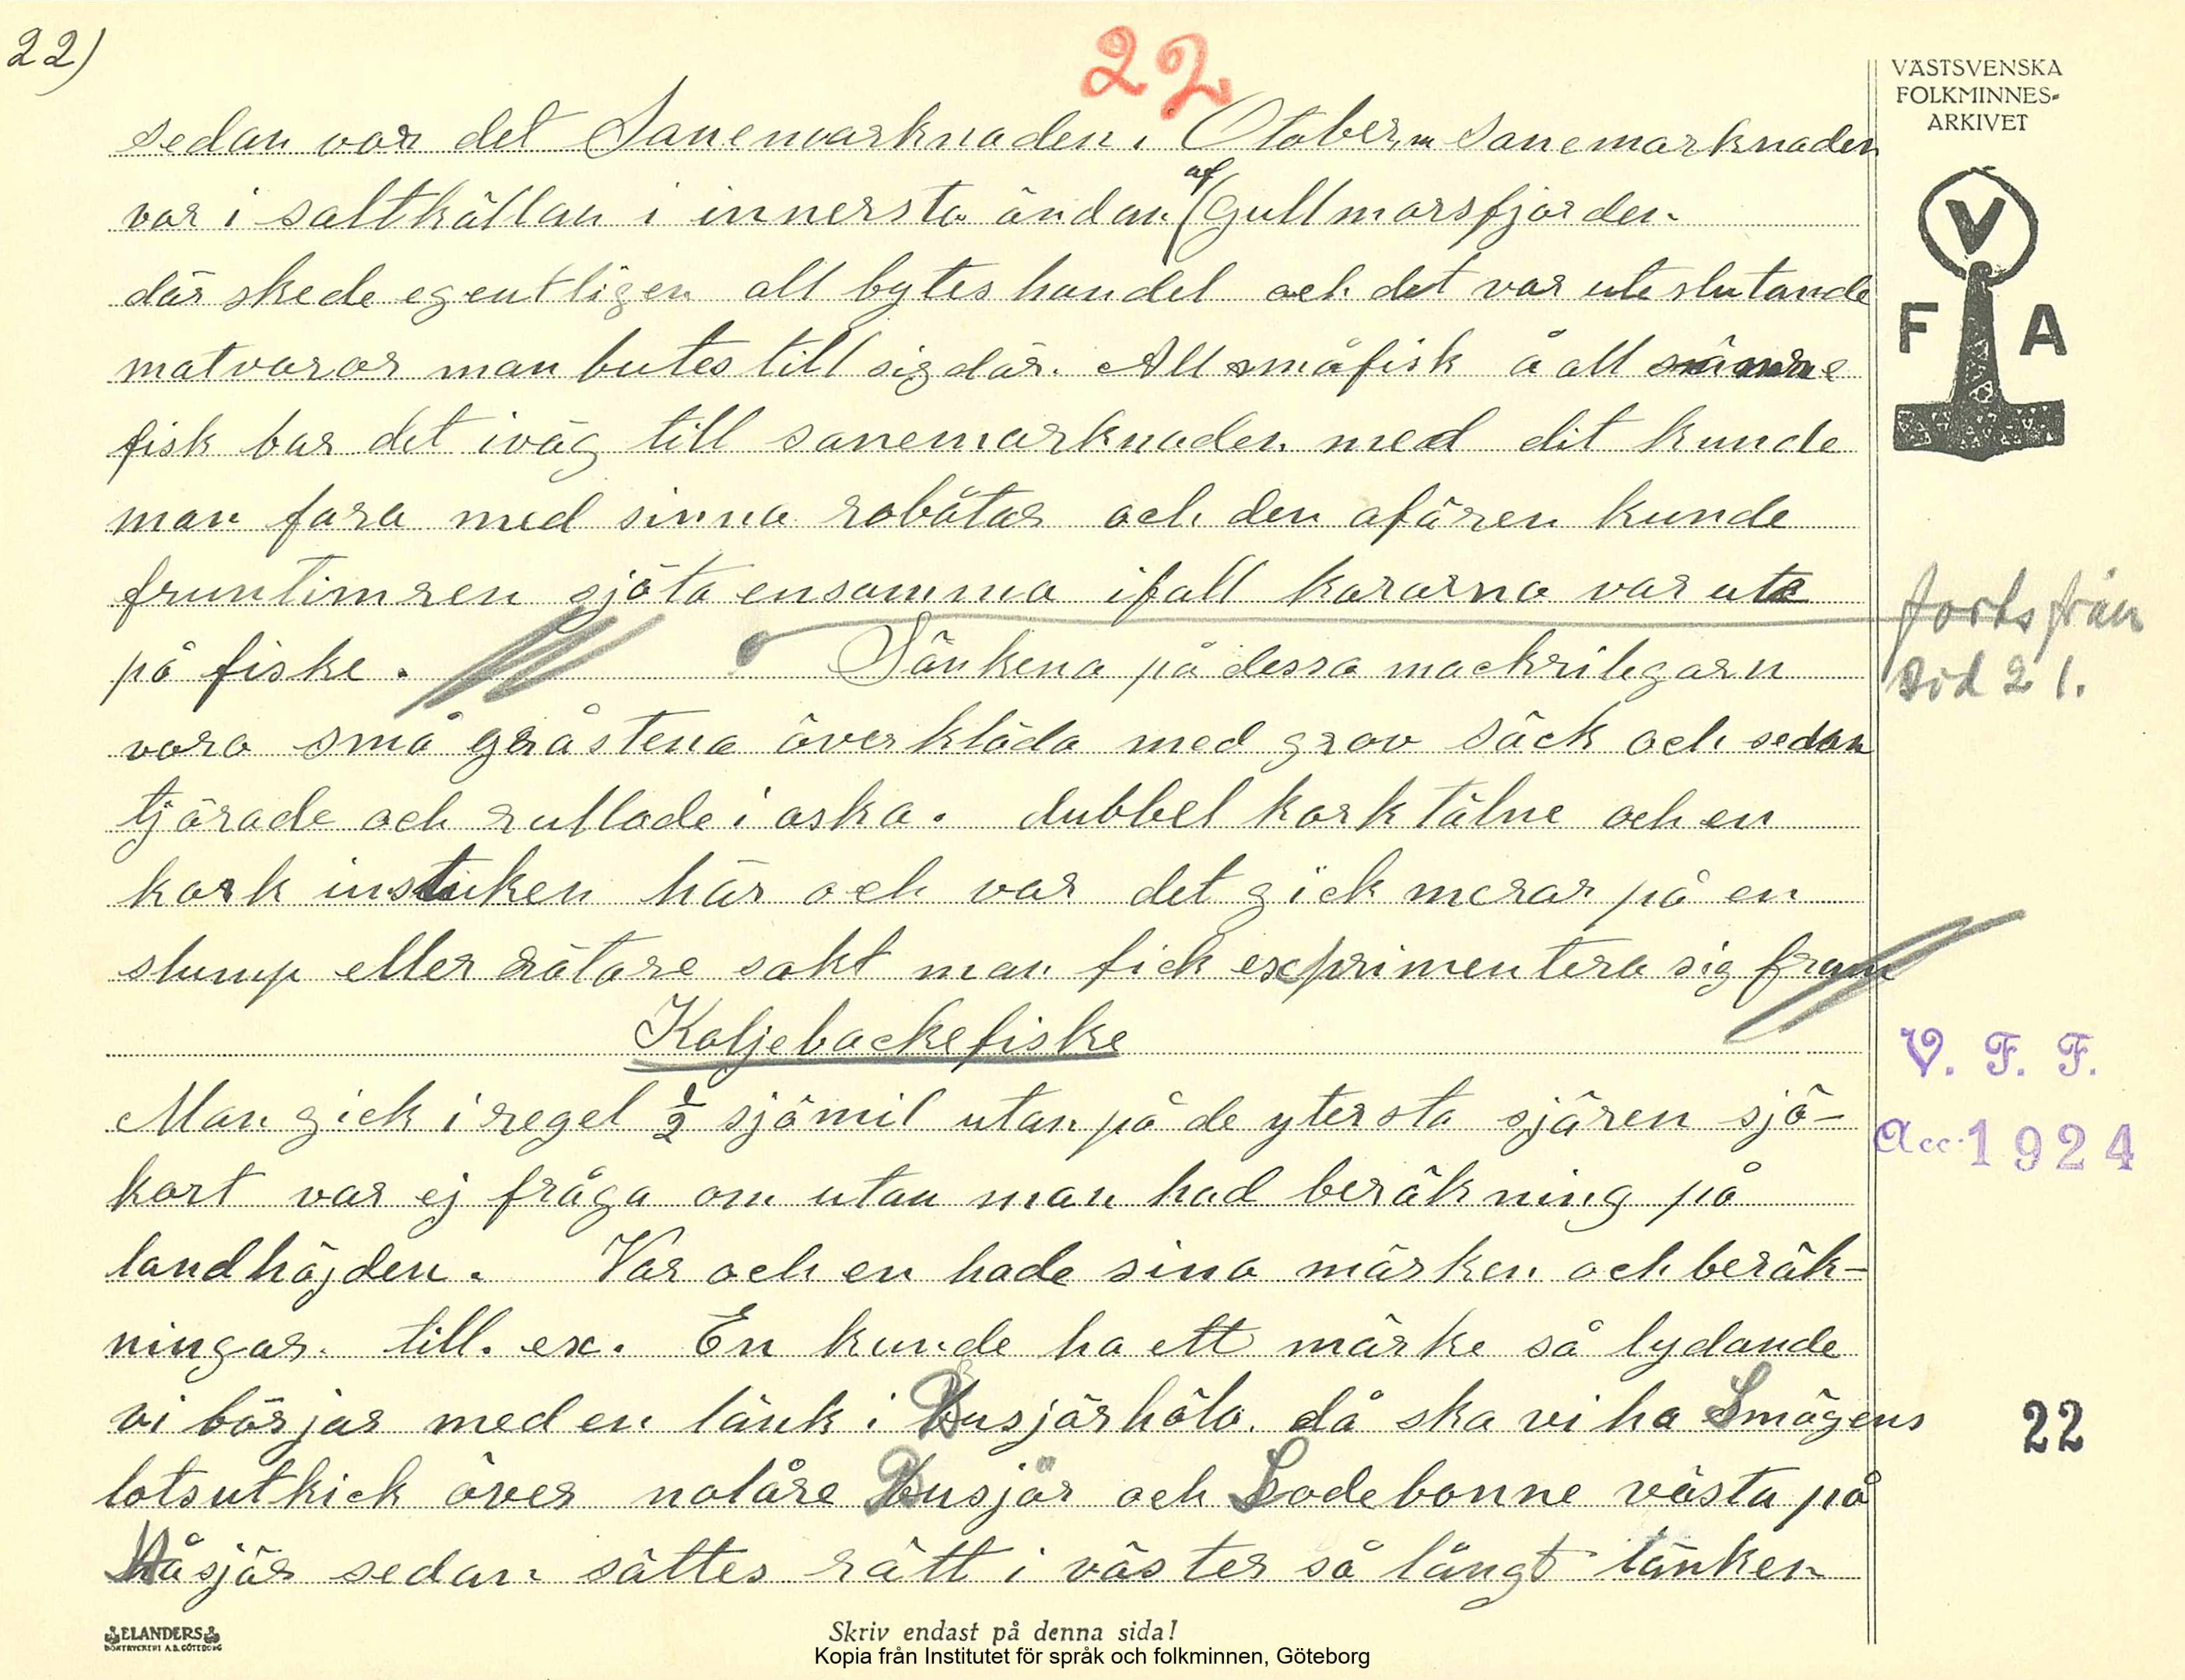 22)
22
VÄSTSVENSKA
FOLKMINNES-
ARKIVET
V
F A
sedan var det Sanemarknaden i Otober, Sanemarknaden
var i saltkällan i innersta ändan af Gullmarsfjorden
där skede egentligen all bytes handel och det var uteslutande
matvaror man butes till sig där. All småfisk å all sämre
fisk bar det iväg till sanemarknaden med dit kunde
man fara med sinna robåtar och den afären kunde
fruntimren sjöta ensamma ifall kararna var ute
på fiske. Sänkena på dessa mackrilegarn
forts från
sid 21.
vara små gråstena överkläda med grov säck och sedan
tjärade och rullade i aska. dubbel kork tälne och en
kork instuken här och var det gick merar på en
slump eller rätare sakt man fick exprimentera sig fram
Koljebackefiske
V. F. F.
Man gick i regel ½ sjömil utan på de ytersta sjären sjö-
Acc. 1924
kort var ej fråga om utan man had beräkning på
landhöjden. Var och en hade sina märken och beräk-
ningar. till. ex. En kunde ha ett märke så lydande
vi börjar med en länk i Busjärhåla. då ska vi ha Smögens
22
lotsutkick över nolåre Busjär och Sodebonne västa på
Håsjär sedan sättes rätt i väster så långt länken
ELANDERS
BOKTRYCKERI A.B. GÖTEBORG
Skriv endast på denna sida!
Kopia från Institutet för språk och folkminnen, Göteborg